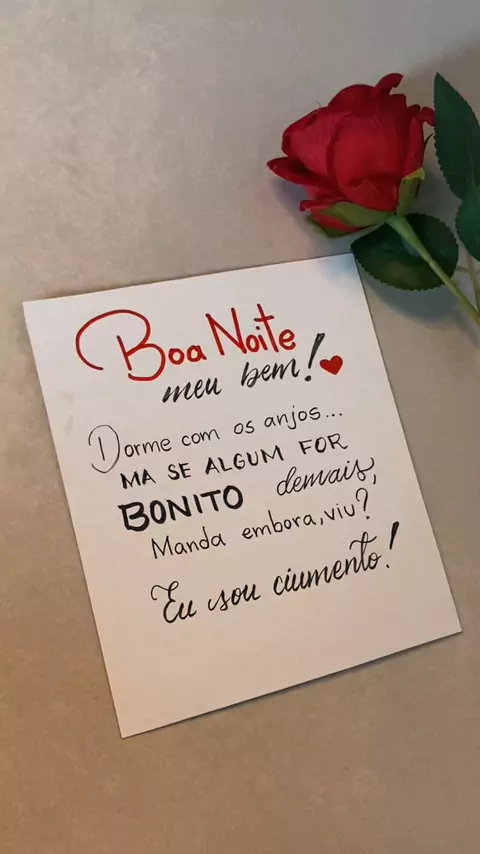 Boa Noite
meu bem!
Dorme com os anjos...
MA SE ALGUM FOR
BONITO demais,
Manda embora, viu?
Eu sou ciumento!